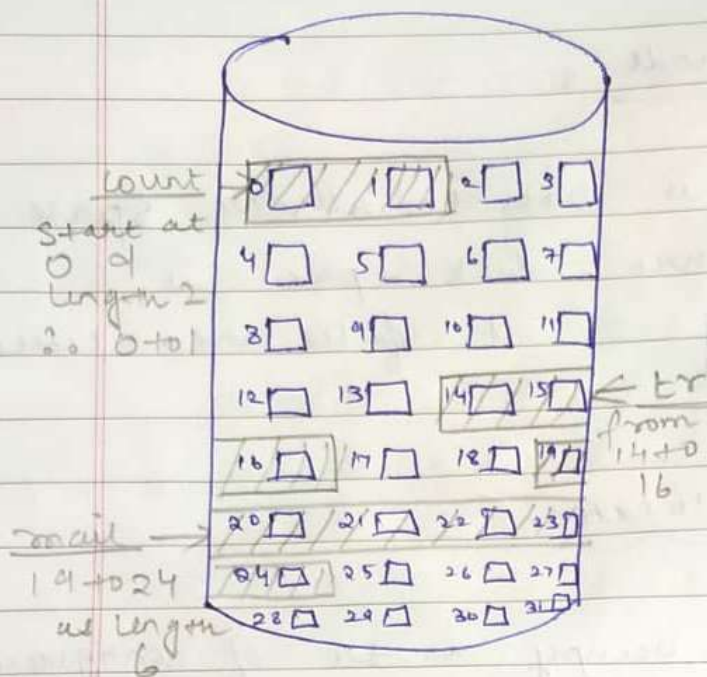 count
start at
0 &
length 2
∴ 0 to 1
0 1 2 3
4 5 6 7
8 9 10 11
12 13 14 15
16 17 18 19
20 21 22 23
24 25 26 27
28 29 30 31
tr
from
14 to
16
mail
19 to 24
as length
6